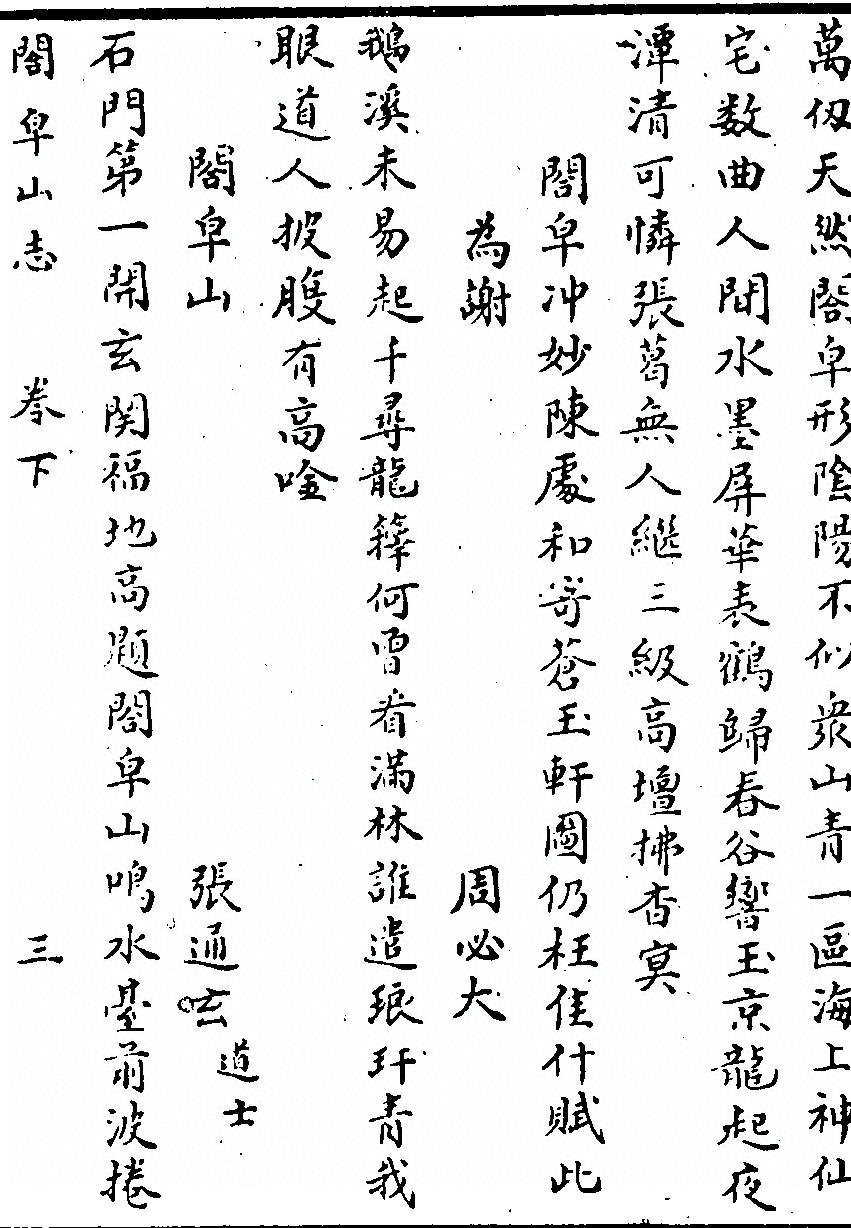 萬仭天然閤皁形陰陽不似衆山青一區海上神仙
宅数曲人間水墨屏華表鶴歸春谷響玉京龍起夜
潭清可憐張葛無人繼三級高壇拂杳冥
閤皁冲妙陳處和寄蒼玉軒圖仍枉佳什賦此
為謝
周必大
鵝溪未易起千尋龍籜何曾看滿林誰遣琅玕青我
眼道人披腹有高唫
閤皁山
張通玄
道士
石門第一閗玄関福地高題閤皁山鳴水臺前波捲
閤皁山志
卷下
三